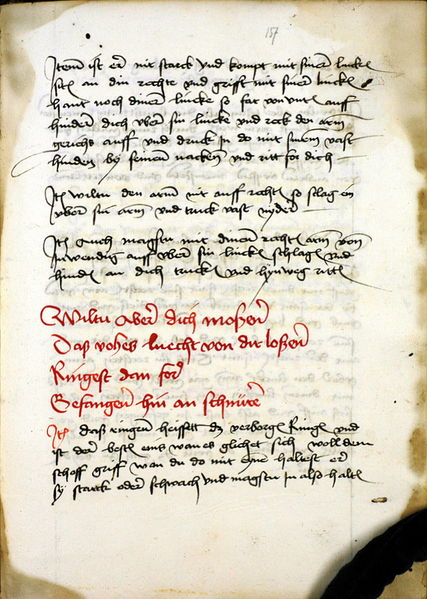 157
Item ist er nit starck vnd kompt mit siner lincken
siten an din rechte vnd grift mit siner lincken
hant noch diner lincke so far von vnten auff
hinder dich vber sin lincke vnd reck den arm
gerichs auff vnd druck in do mit sinem vast
hinden by seinem nacken vnd ritt for dich
Item wiltu den arm nit auff recken so slag en
vber sin arm vnd truck vast nyder
Item Auch magstu mit dinem rechten arm von
Inwendig auff vber sin lincken schlagen vnd
hinden an dich trucken vnd hinweg ritten
Wiltu Aber dich moßen
Daß yohes knecht von dir loßen
Ringest dan for
Gefangen hin an schnüre
Item daß ringen heissett dz verborgen Ringen vnd
ist der besten eins wan es glichet sich woll dem
schoff griff wan du do mit eyne haltest er
sy starck oder schwach vnd magstu in also halten